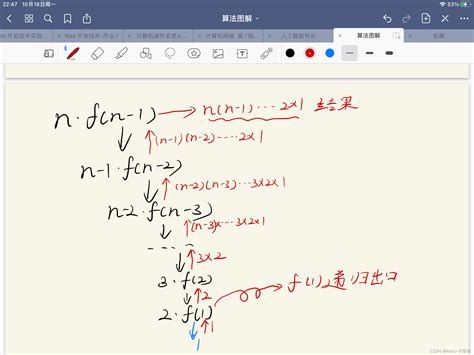 22:47 10月18日周一
53%
算法图解
Web开发技术-作业1
计算机操作系统
计算机网络 第7版
人工智能导论
算法图解
n·f(n-1) → n(n-1)···2×1 结果
(n-1)(n-2)----2×1
n-1·f(n-2)
(n-2)(n-3)···3×2×1
n-2·f(n-3)
(n-3)×···3×2×1
3×2
3·f(2)
2
2·f(1)
f(1)递归出口
1
1